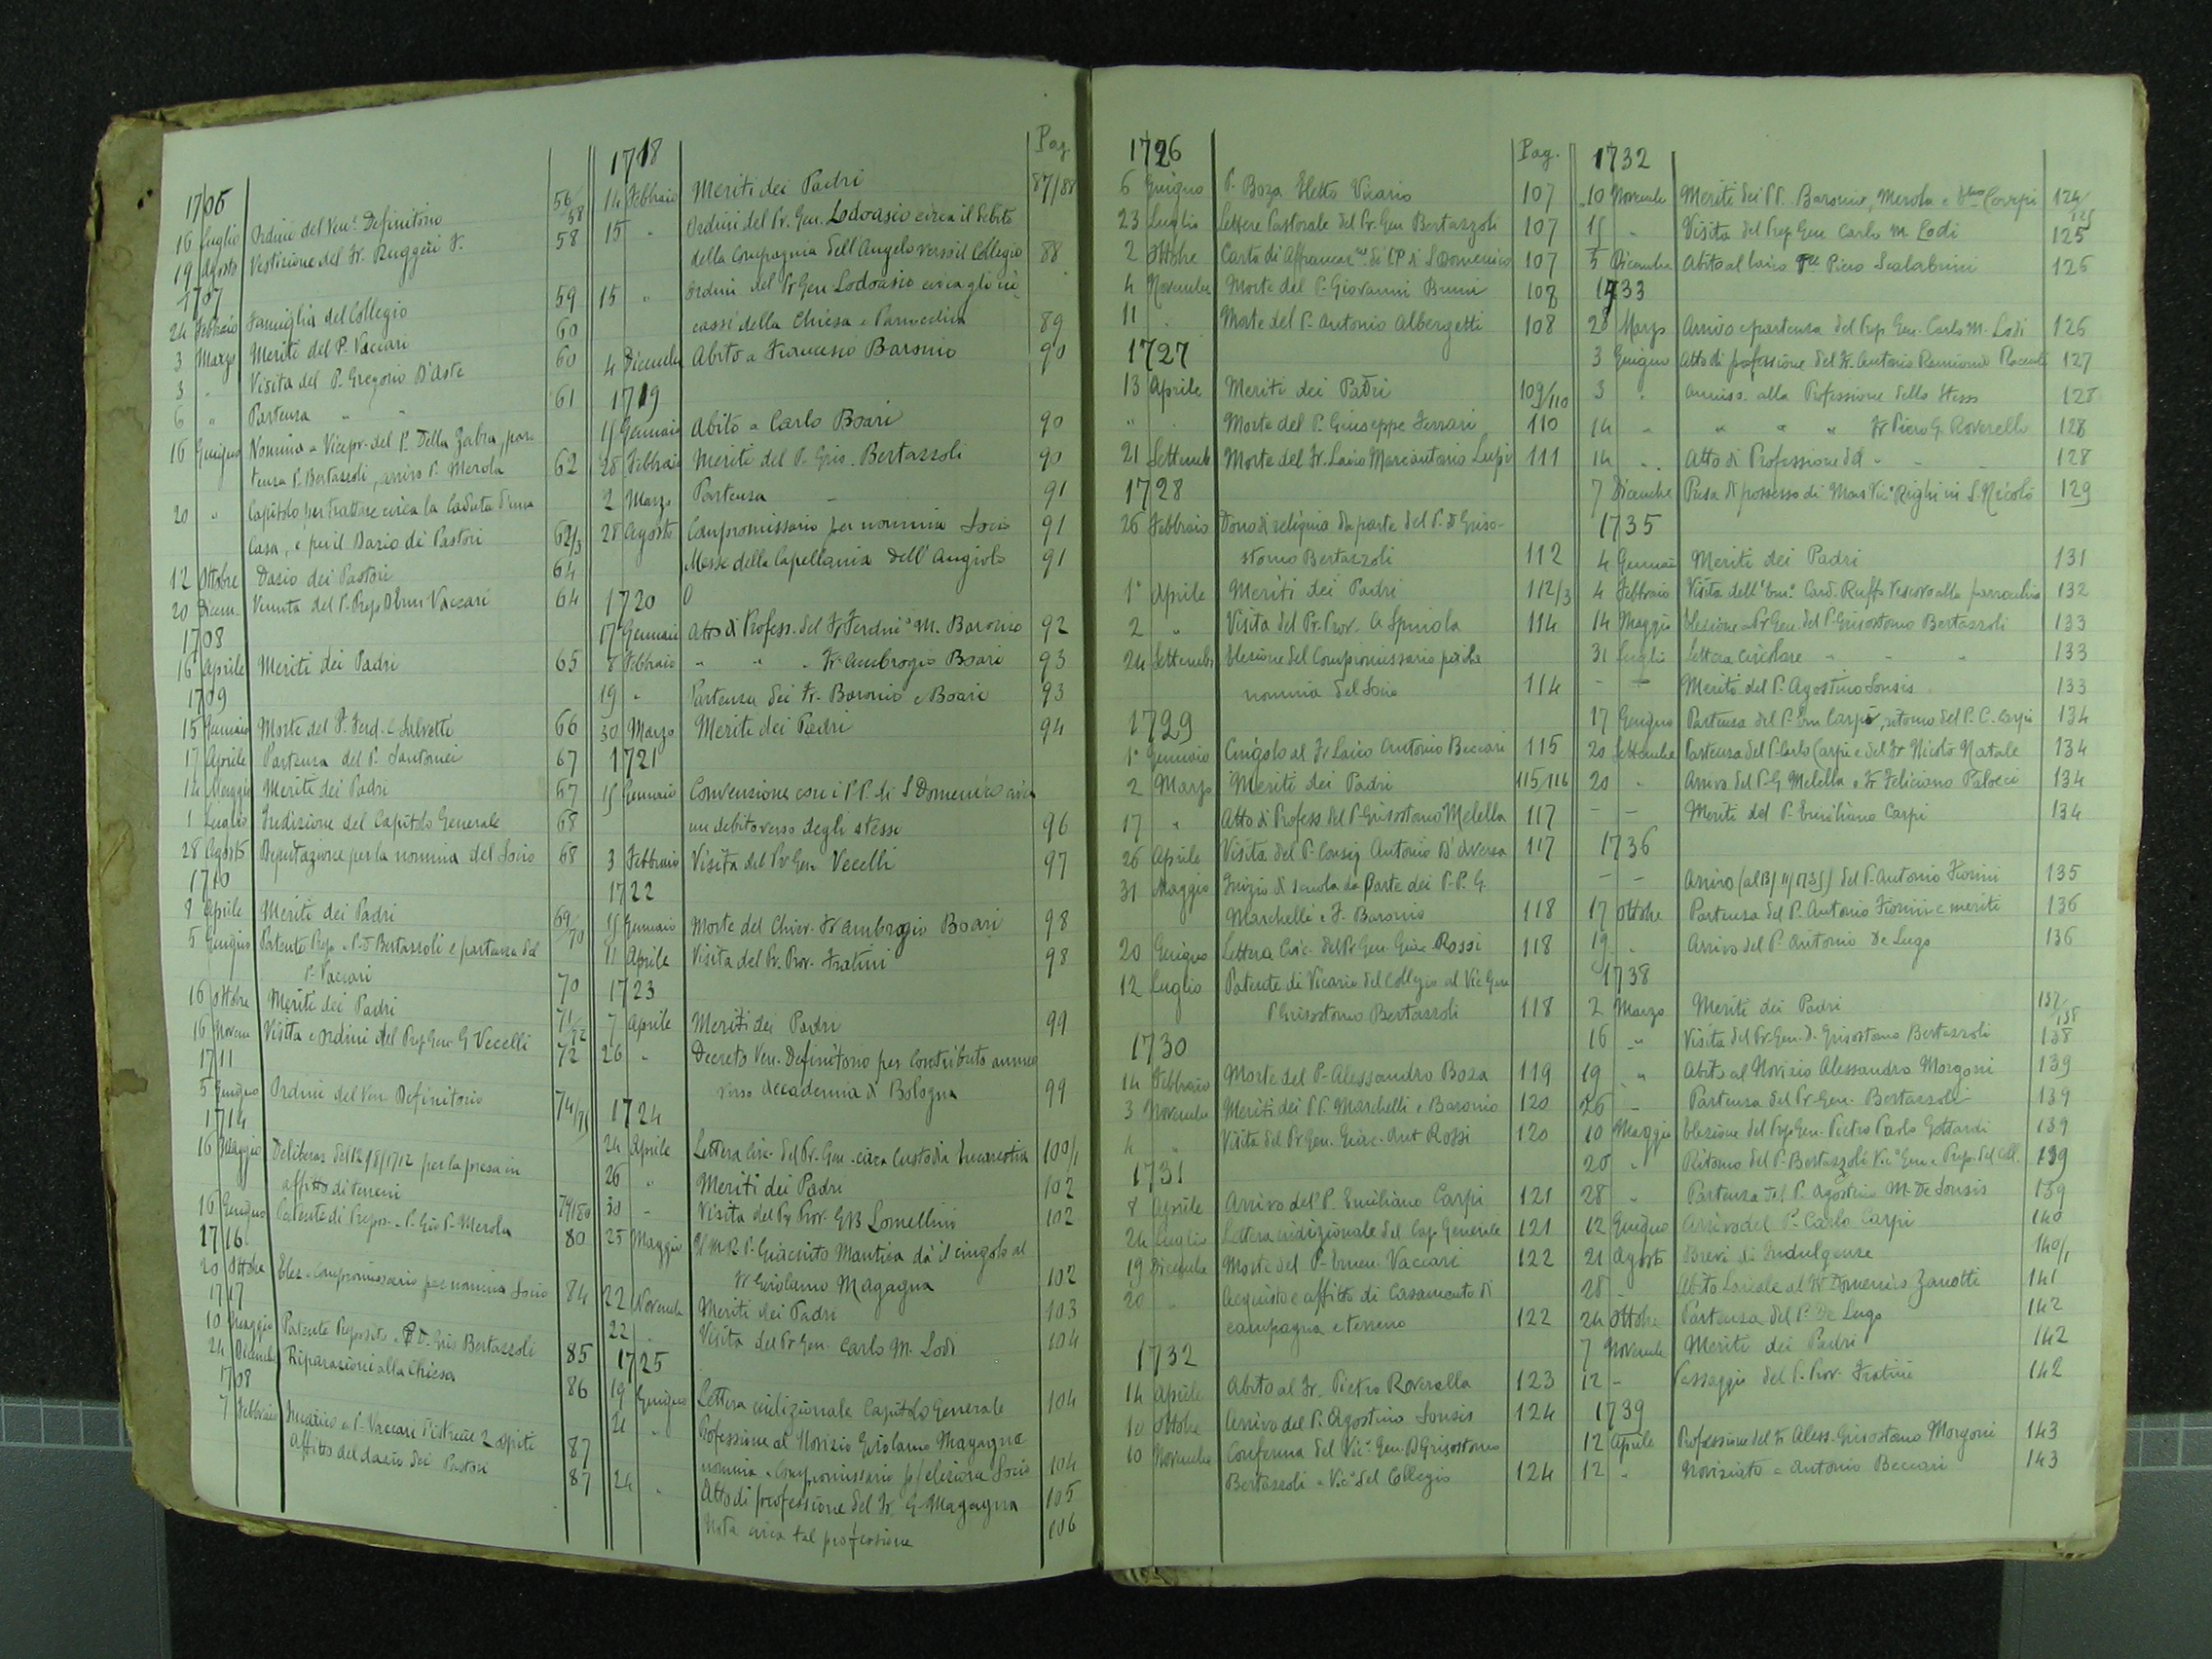 1706
16 Luglio Ordini del Ven. Definitorio 56/58
19 Agosto Vestizione del Fr. Ruggeri F. 58
1707
24 Febbraio Famiglia del Collegio 59
3 Marzo Meriti del P. Vaccari 60
3 " Visita del P. Gregorio D'Aste 60
6 " Partenza " " 61
16 Giugno Nomina a Vicepr. del P. Della Zabra, par-
tenza P. Bertazzoli, arrivo P. Merola 62
20 " Capitolo per trattare circa la caduta d'una
Casa, e per il Dazio di Pastori 62/3
12 Ottobre Dazio dei Pastori 64
20 Dicem. Venuta del P. Prep. Vaccari 64
1708
16 Aprile Meriti dei Padri 65
1709
15 Gennaio Morte del P. Ferd. Salvetti 66
17 Aprile Partenza del P. Santonini 67
14 Maggio Meriti dei Padri 67
1 Luglio Indizione del Capitolo Generale 68
28 Agosto Deputazione per la nomina del Socio 68
1710
8 Aprile Meriti dei Padri 69/70
5 Giugno Patente Prep. a P. D. Bertazzoli e partenza del
P. Vaccari 70
16 Ottobre Meriti dei Padri 71/72
16 Novem Visita e ordini del Prep. Gen. G. Vecelli 72
1711
5 Giugno Ordini del Ven. Definitorio 74/75
1714
16 Maggio Deliberaz. del 12/8/1712 per la presa in
affitto di terreni 79/80
16 Giugno Patente di Prepos. a P. Gio P. Merola 80
1716
20 Ottobre Elez. Compromissario per nomina Socio 84
1717
10 Maggio Patente Preposito a P. D. Gris Bertazzoli 85
24 Dicembre Riparazioni alla Chiesa 86
1708
7 Febbraio Incarico a P. Vaccari d'istruire 2 ospiti 87
Affitto del dazio dei Pastori 87
1718 Pag
14 Febbraio Meriti dei Padri 87/88
15 " Ordini del Pr. Gen. Lodovasio circa il debito
della Compagnia dell'Angelo verso il Collegio 88
15 " Ordini del Pr Gen Lodovasio circa gli in-
cassi della Chiesa e Parrocchia 89
4 Dicembre Abito a Francesco Baronio 90
1719
15 Gennaio Abito a Carlo Boari 90
28 Febbraio Meriti del P. Gris. Bertazzoli 90
2 Marzo Partenza " 91
28 Agosto Compromissario per nomina Socio 91
Messe della Capellania dell'Angiolo 91
1720
17 Gennaio Atto di Profess. del Fr Ferdin° M. Baronio 92
8 Febbraio " " " Fr Ambrogio Boari 93
19 " Partenza dei Fr. Baronio e Boari 93
30 Marzo Meriti dei Padri 94
1721
15 Gennaio Convenzione con i P.P. di S Domenico circa
un debito verso degli stessi 96
3 Febbraio Visita del Pr Gen Vecelli 97
1722
15 Gennaio Morte del Chier. Fr Ambrogio Boari 98
11 Aprile Visita del Pr. Prov. Fratini 98
1723
7 Aprile Meriti dei Padri 99
26 " Decreto Ven. Definitorio per contributo annuo
verso Accademia di Bologna 99
1724
24 Aprile Lettera circ. del Pr. Gen. circa Custodia Eucaristia 100/1
26 " Meriti dei Padri 102
30 " Visita del Pr. Prov. GB Lomellini 102
25 Maggio Il M.R.P. Giacinto Mantica dà il cingolo al
Fr Girolamo Magagna 102
22 Novembre Meriti dei Padri 103
22 " Visita del Pr Gen. Carlo M. Lodi 104
1725
19 Giugno Lettera indizionale Capitolo Generale 104
21 " Professione al Novizio Girolamo Magagna
nomina a Compromissario p/elezione Socio 104
24 " Atto di professione del Fr. G. Magagna 105
Nota circa tal professione 106
1726 Pag.
6 Giugno P. Boza Eletto Vicario 107
23 Luglio Lettere Pastorale del Pr. Gen Bertazzoli 107
2 Ottobre Carta di Affrancaz.ne di PP di S Domenico 107
4 Novembre Morte del P. Giovanni Bruni 108
11 " Morte del P. Antonio Albergetti 108
1727
13 Aprile Meriti dei Padri 109/110
" " Morte del P. Giuseppe Ferrari 110
21 Settemb. Morte del Fr. Laico Marcantonio Lupi 111
1728
26 Febbraio Dono di reliquia da parte del P. D Griso-
stomo Bertazzoli 112
1° Aprile Meriti dei Padri 112/3
2 " Visita del Pr. Prov. A Spinola 114
24 Settembr Elezione del Compromissario per la
nomina del Socio 114
1729
1° Gennaio Cingolo al Fr Laico Antonio Beccari 115
2 Marzo Meriti dei Padri 115/116
17 " Atto di Profess del P Grisostomo Melella 117
26 Aprile Visita del P. Consig Antonio D'Aversa 117
31 Maggio Inizio di scuola da Parte dei P.P. G.
Marchelli e F. Baronio 118
20 Giugno Lettera Circ. del Pr Gen. Giac. Rossi 118
12 Luglio Patente di Vicario del Collegio al Vic Gen
P Grisostomo Bertazzoli 118
1730
14 Febbraio Morte del P. Alessandro Boza 119
3 Novembre Meriti dei P.P. Marchelli e Baronio 120
4 " Visita del Pr Gen. Giac. Ant Rossi 120
1731
8 Aprile Arrivo del P. Emiliano Carpi 121
24 Luglio Lettera indizionale del Cap Generale 121
19 Dicembre Morte del P. Vaccari 122
20 " Acquisto e affitto di Casamento di
campagna e terreno 122
1732
14 Aprile Abito al Fr. Pietro Roverella 123
10 Ottobre Arrivo del P. Agostino Sonsis 124
10 Novembre Conferma del Vic° Gen. D Grisostomo
Bertazzoli a Vic° del Collegio 124
1732
10 Novembre Meriti dei PP. Baronio, Merola e Carpi 124/125
15 " Visita del Prep Gen Carlo M. Lodi 125
5 Dicembre Abito al laico Piero Scalabrini 126
1733
28 Marzo Arrivo e partenza del Prep Gen. Carlo M. Lodi 126
3 Giugno Atto di professione del Fr. Antonio 127
3 " Ammiss. alla Professione dello stesso 128
14 " " " " Fr Piero G. Roverella 128
14 " Atto di Professione del " " 128
7 Dicembre Presa di possesso di Mons Vic° Righi in S. Nicolò 129
1735
4 Gennaio Meriti dei Padri 131
4 Febbraio Visita dell'Em° Card. Ruffo Vescovo alla parrocchia 132
14 Maggio Elezione a Pr Gen. del P. Grisostomo Bertazzoli 133
31 Luglio Lettera circolare " " " 133
- - Meriti del P. Agostino Sonsis 133
17 Giugno Partenza del P. Em Carpi, ritorno del P. C. Carpi 134
20 Settembre Partenza del P. Carlo Carpi e del Fr Nicolò Natale 134
20 " Arrivo del P. G Melella e Fr Feliciano 134
- - Meriti del P. Emiliano Carpi 134
1736
- - Arrivo (al 13/11/1735) del P. Antonio Fiorini 135
17 Ottobre Partenza del P. Antonio Fiorini e meriti 136
19 " Arrivo del P. Antonio De Lugo 136
1738
2 Marzo Meriti dei Padri 137/138
16 " Visita del Pr. Gen. D. Grisostomo Bertazzoli 138
19 " Abito al Novizio Alessandro Morgoni 139
26 " Partenza del Pr Gen. Bertazzoli 139
10 Maggio Elezione del Prep. Gen. Pietro Paolo Gottardi 139
20 " Ritorno del P. Bertazzoli Vic° Gen e Prep. del Coll. 139
28 " Partenza del P. Agostino M. De Sonsis 139
12 Giugno Arrivo del P. Carlo Carpi 140
21 Agosto Brevi di Indulgenze 140/1
28 " Abito Laicale al Fr Domenico Zanotti 141
24 Ottobre Partenza del P. De Lugo 142
7 Novembre Meriti dei Padri 142
12 " Passaggio del P. Prov. Fratini 142
1739
12 Aprile Professione del Fr Aless. Grisostomo Morgoni 143
12 " Noviziato a Antonio Beccari 143